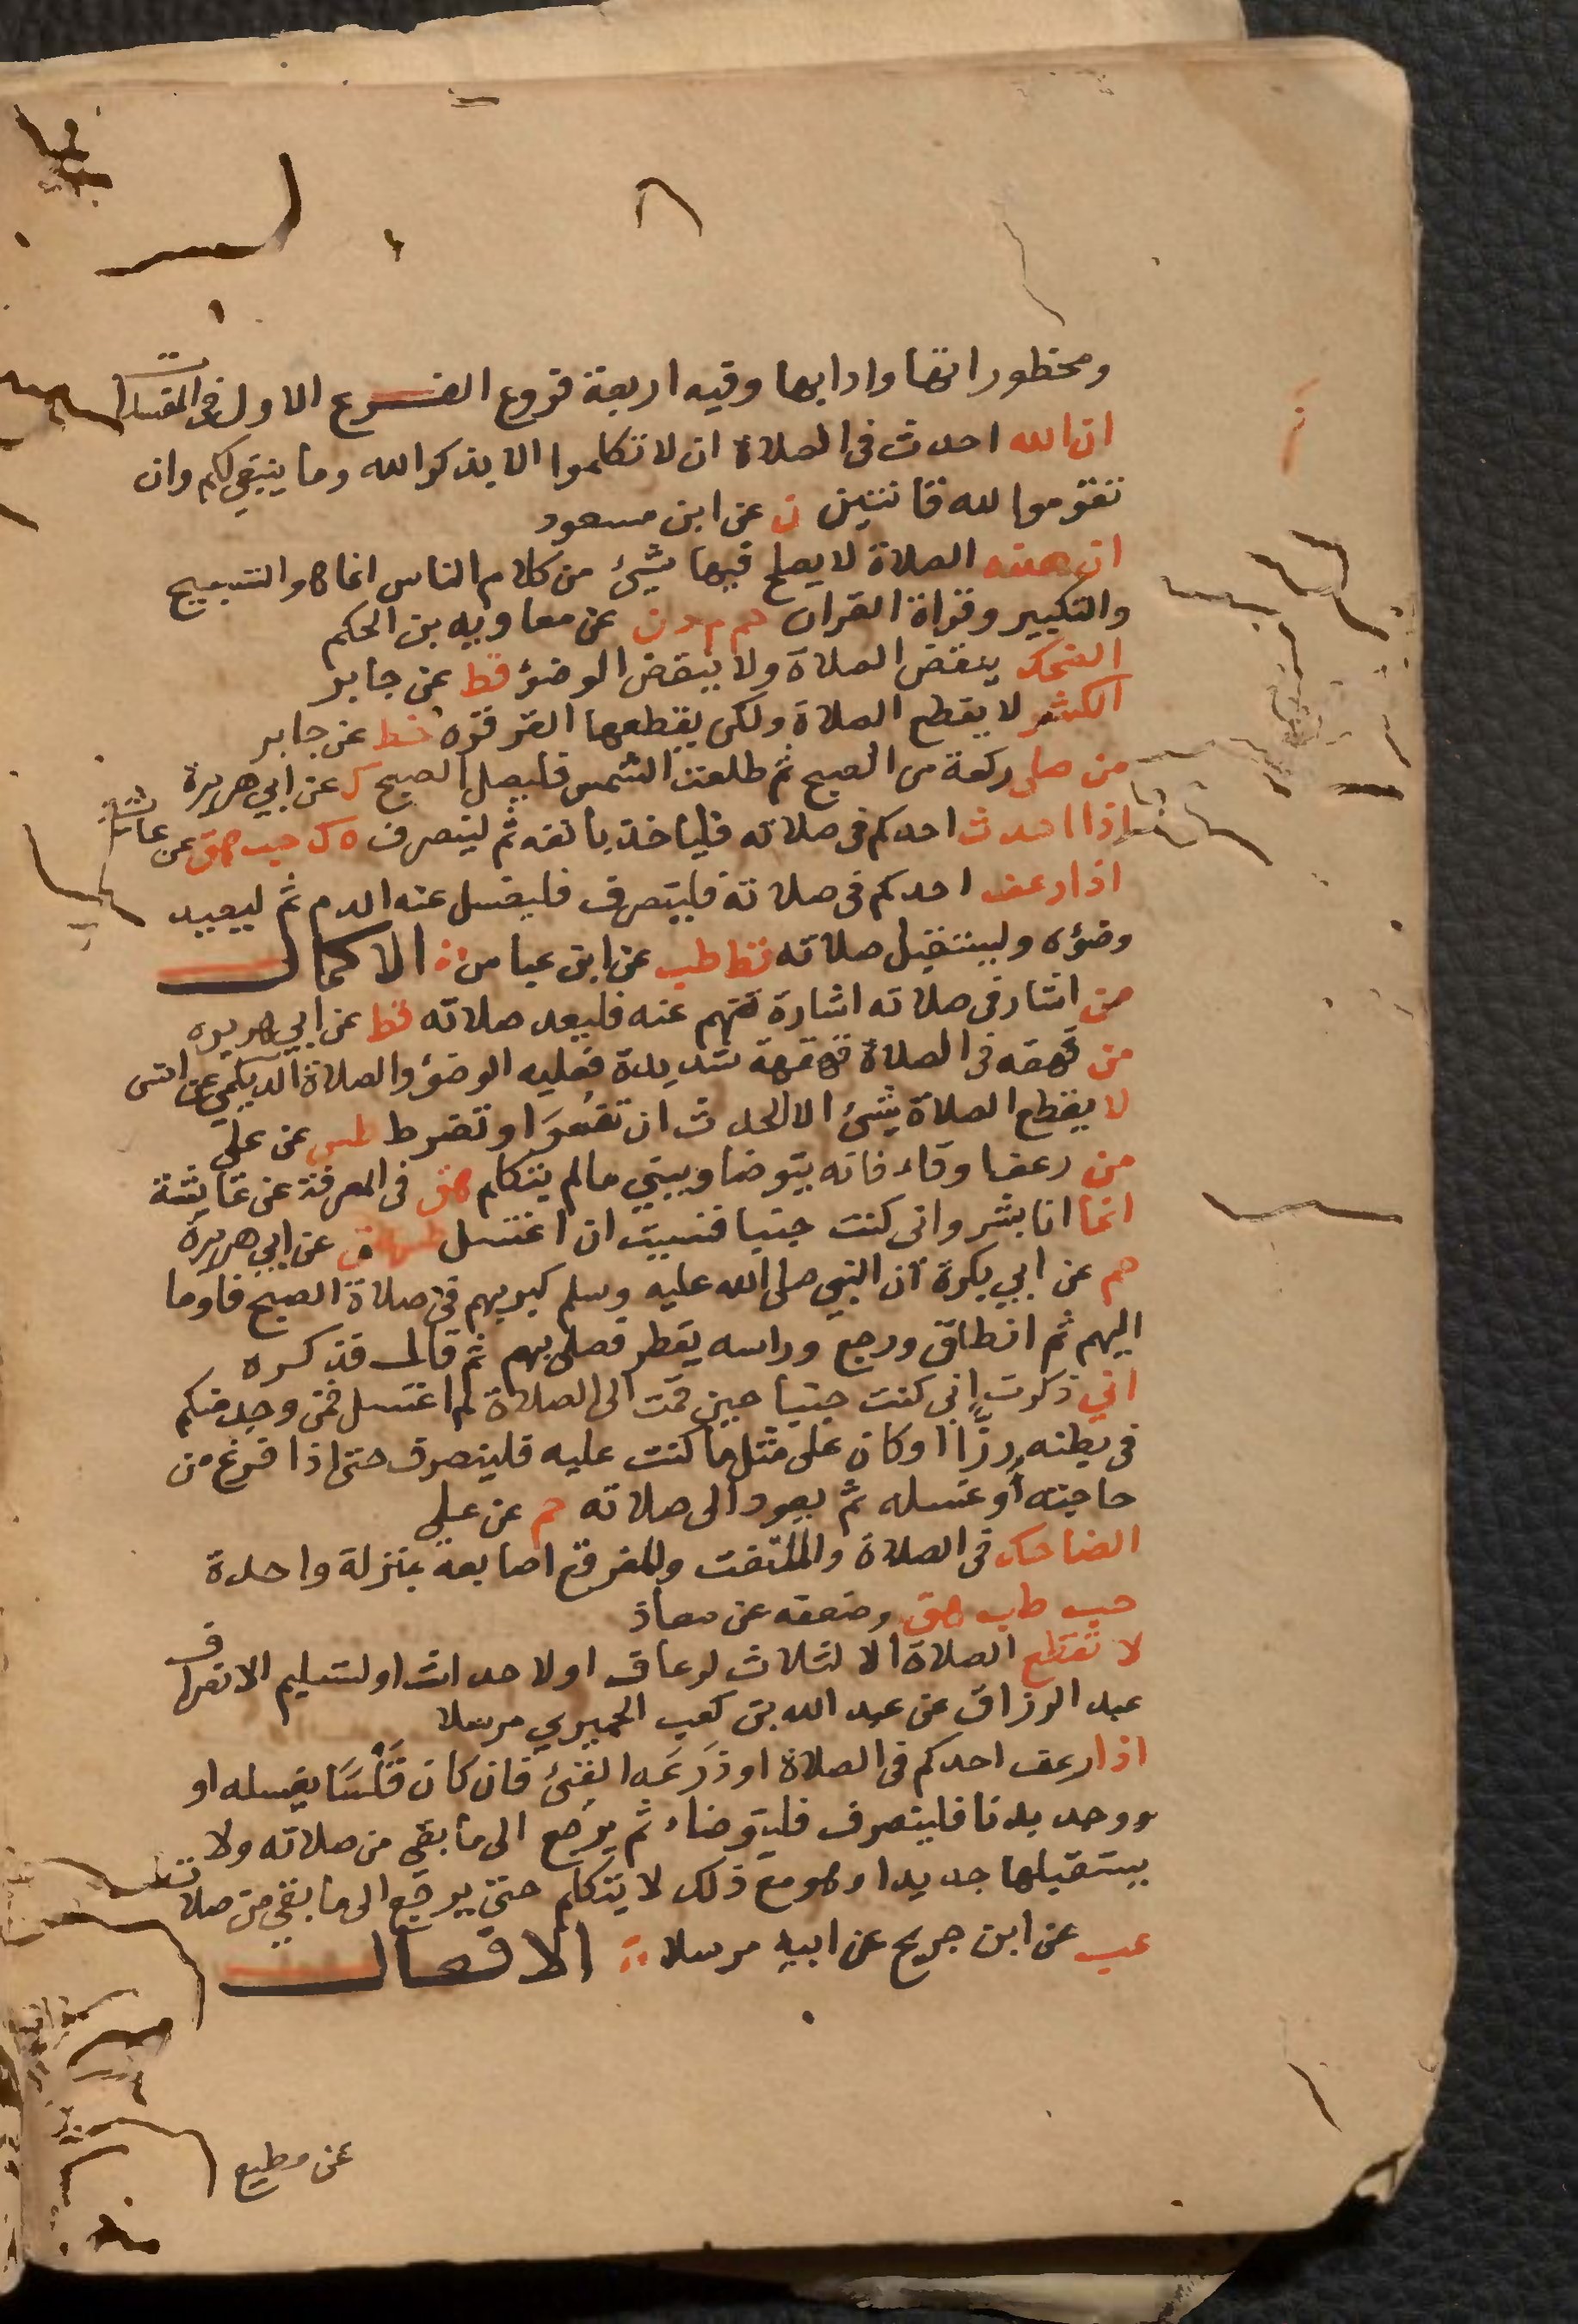 ومحظوراتها وادابها وفيه اربعة فروع الفرع الاول في المفسدات
ان الله احدث في الصلاة ان لا تكلموا الا بذكر الله وما ينبغي لكم وان
تقوموا لله قانتين ن عن ابن مسعود
ان هذه الصلاة لا يصلح فيها شيئ من كلام الناس انما هو التسبيح
والتكبير وقراة القران حم م د ن عن معاويه بن الحكم
الضحك ينقض الصلاة ولا ينقض الوضؤ قط عن جابر
الكشر لا يقطع الصلاة ولكن يقطعها القرقره خط عن جابر
من صلى ركعة من الصبح ثم طلعت الشمس فليصل الصبح ك عن ابي هريرة
اذا احدث احدكم في صلاته فلياخذ بانفه ثم لينصرف ه ك حب هق عن عائشة
اذا رعف احدكم في صلاته فلينصرف فليغسل عنه الدم ثم ليعيد
وضؤه وليستقبل صلاته قط طب عن ابن عباس الاكمال
من اشار في صلاته اشارة تفهم عنه فليعد صلاته قط عن ابي هريره
من قهقه في الصلاة قهقهة شديدة فعليه الوضؤ والصلاة الديلمي عن انس
لا يقطع الصلاة شيئ الا الحدث ان تفسو او تضرط طس عن علي
من رعف او قاء فانه يتوضا ويبني مالم يتكلم هق في المعرفة عن عائشة
انما انا بشر واني كنت جنبا فنسيت ان اغتسل طس هق عن ابي هريرة
حم عن ابي بكرة ان النبي صلى الله عليه وسلم كبر بهم في صلاة الصبح فاوما
اليهم ثم انطلق ورجع وراسه يقطر فصلى بهم ثم قال فذكره
اني ذكرت اني كنت جنبا حين قمت الى الصلاة لم اغتسل فمن وجد منكم
في بطنه رزّا او كان على مثل ما كنت عليه فلينصرف حتى اذا فرغ من
حاجته أو غسله ثم يعود الى صلاته حم عن علي
الضاحك في الصلاة والملتفت والمفرقع اصابعه بمنزلة واحدة
حب طب هق وضعفه عن معاذ
لا تقطع الصلاة الا لثلاث لرعاف او لاحداث او لتسليم الانصراف
عبد الرزاق عن عبد الله بن كعب الحميري مرسلا
اذا رعف احدكم في الصلاة او ذرعه القيئ فان كان قلسا يغسله او
ووجد بدنا فلينصرف فليتوضاء ثم يرجع الى ما بقي من صلاته ولا
يستقبلها جديدا وهو مع ذلك لا يتكلم حتى يرجع الى ما بقي من صلاته
عب عن ابن جريج عن ابيه مرسلا الافعال
عن مطيع